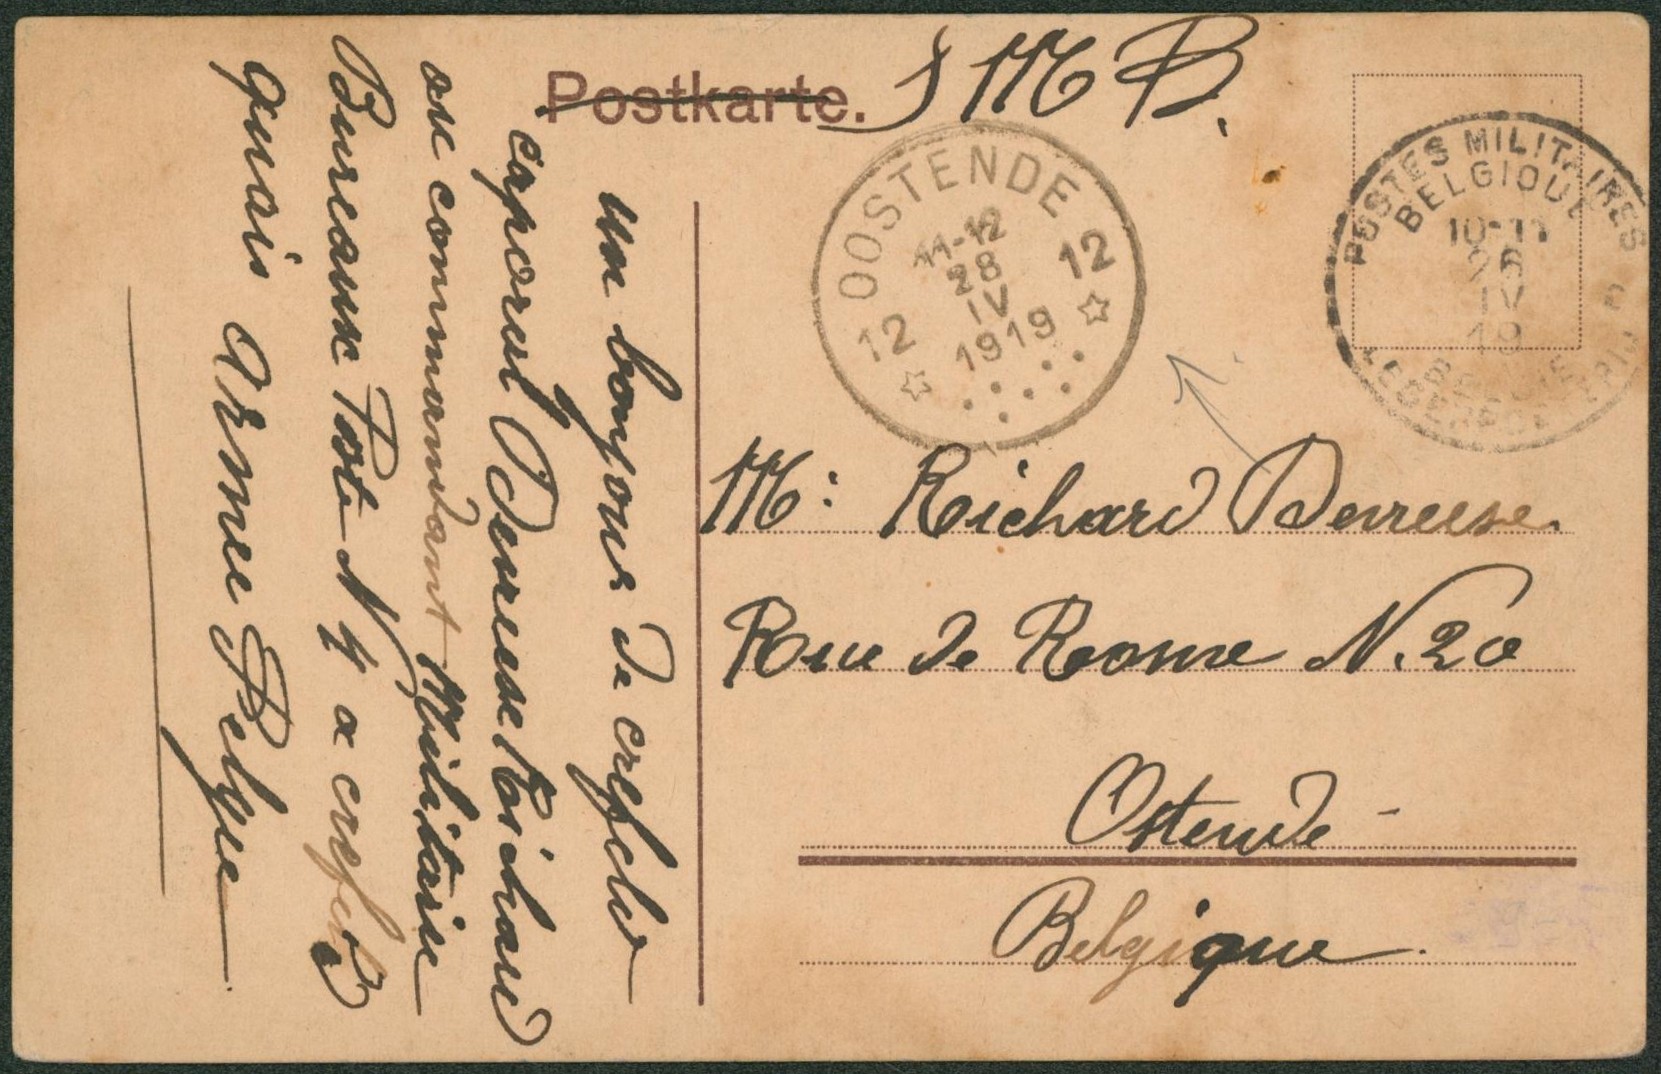 Postkarte.
S M B.
OOSTENDE
11-12
28
IV
1919
12 12
POSTES MILITAIRES
BELGIQUE
10-11
26
IV
19
BELGIE
LEGERPOSTERIJ
Un bonjour de crefeld
caporal Devreese Richard
au commandant Militaire
Bureaux Poste N 4 a crefeld
quais Armee Belge
M: Richard Devreese.
Rue de Rome N. 20
Ostende -
Belgique.